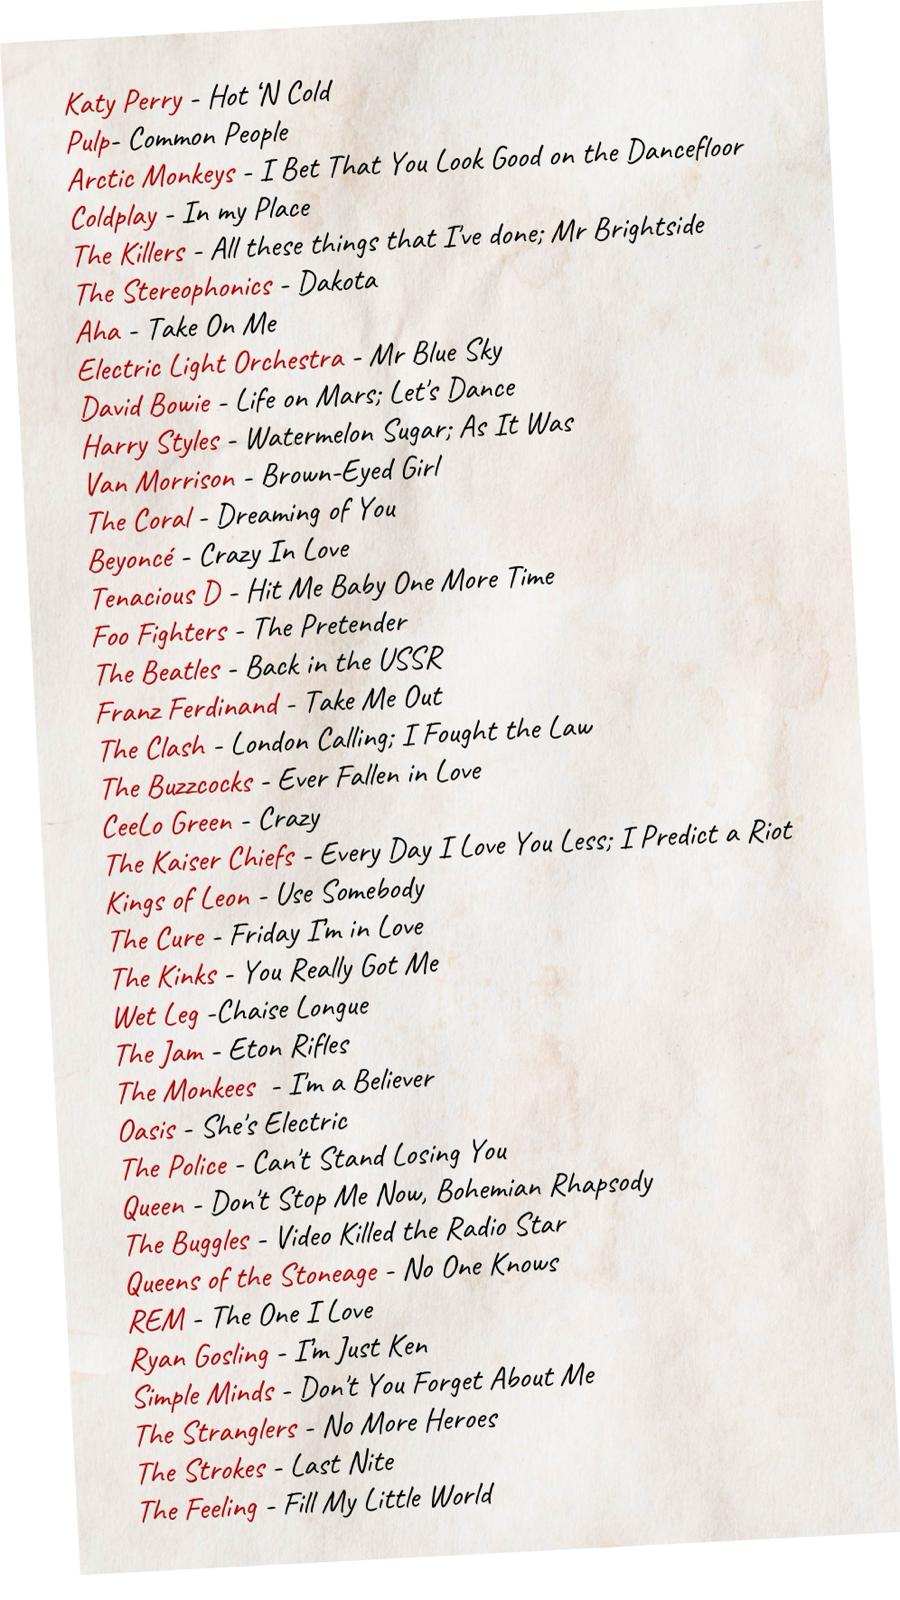 Katy Perry - Hot ‘N Cold
Pulp- Common People
Arctic Monkeys - I Bet That You Look Good on the Dancefloor
Coldplay - In my Place
The Killers - All these things that I've done; Mr Brightside
The Stereophonics - Dakota
Aha - Take On Me
Electric Light Orchestra - Mr Blue Sky
David Bowie - Life on Mars; Let's Dance
Harry Styles - Watermelon Sugar; As It Was
Van Morrison - Brown-Eyed Girl
The Coral - Dreaming of You
Beyoncé - Crazy In Love
Tenacious D - Hit Me Baby One More Time
Foo Fighters - The Pretender
The Beatles - Back in the USSR
Franz Ferdinand - Take Me Out
The Clash - London Calling; I Fought the Law
The Buzzcocks - Ever Fallen in Love
CeeLo Green - Crazy
The Kaiser Chiefs - Every Day I Love You Less; I Predict a Riot
Kings of Leon - Use Somebody
The Cure - Friday I'm in Love
The Kinks - You Really Got Me
Wet Leg -Chaise Longue
The Jam - Eton Rifles
The Monkees  - I'm a Believer
Oasis - She's Electric
The Police - Can't Stand Losing You
Queen - Don't Stop Me Now, Bohemian Rhapsody
The Buggles - Video Killed the Radio Star
Queens of the Stoneage - No One Knows
REM - The One I Love
Ryan Gosling - I'm Just Ken
Simple Minds - Don't You Forget About Me
The Stranglers - No More Heroes
The Strokes - Last Nite
The Feeling - Fill My Little World